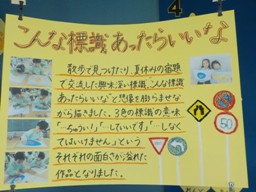 こんな標識あったらいいな
散歩で見つけたり、夏休みの宿題
で交流した興味深い標識。こんな標識
あったらいいな と想像を膨らませな
がら描きました。3色の標識の意味
"…ちゅうい！""…していいです""…しなく
てはいけません"という
それぞれの面白さが溢れた
作品となりました。
4
50